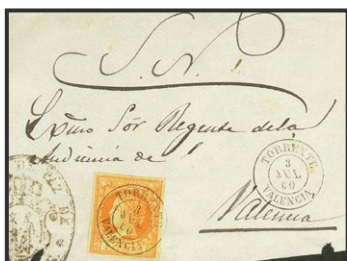 S. N.
Exmo Sor Regente de la
Audiencia de
Valencia
TORRENTE
3
JUL
60
VALENCIA
3
JUL
60
VALENCIA